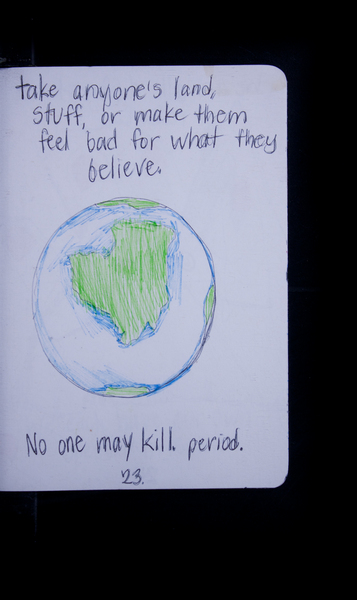 take anyone's land,
stuff, or make them
feel bad for what they
believe.
No one may kill. period.
23.